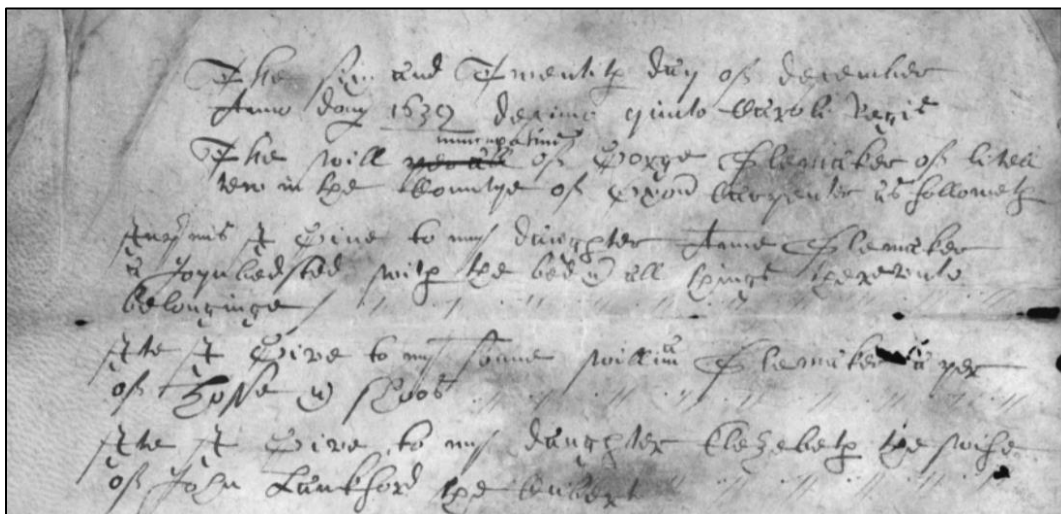 The six and Twentith day of december
Anno dom 1639 decimo quinto Caroli Regis
nuncupative
The will of George Slemaker of
in the Countye of Oxon Carpenter as followeth
I Give to my daughter Anne Slemaker
a Joynbedsted with the bed & all things therevnto
belonginge
Ite I Give to my sonne William Slemaker a per
of Hosse & shoos
Ite I Give to my daughter Elezebeth the wife
of John Lankford the Cubert